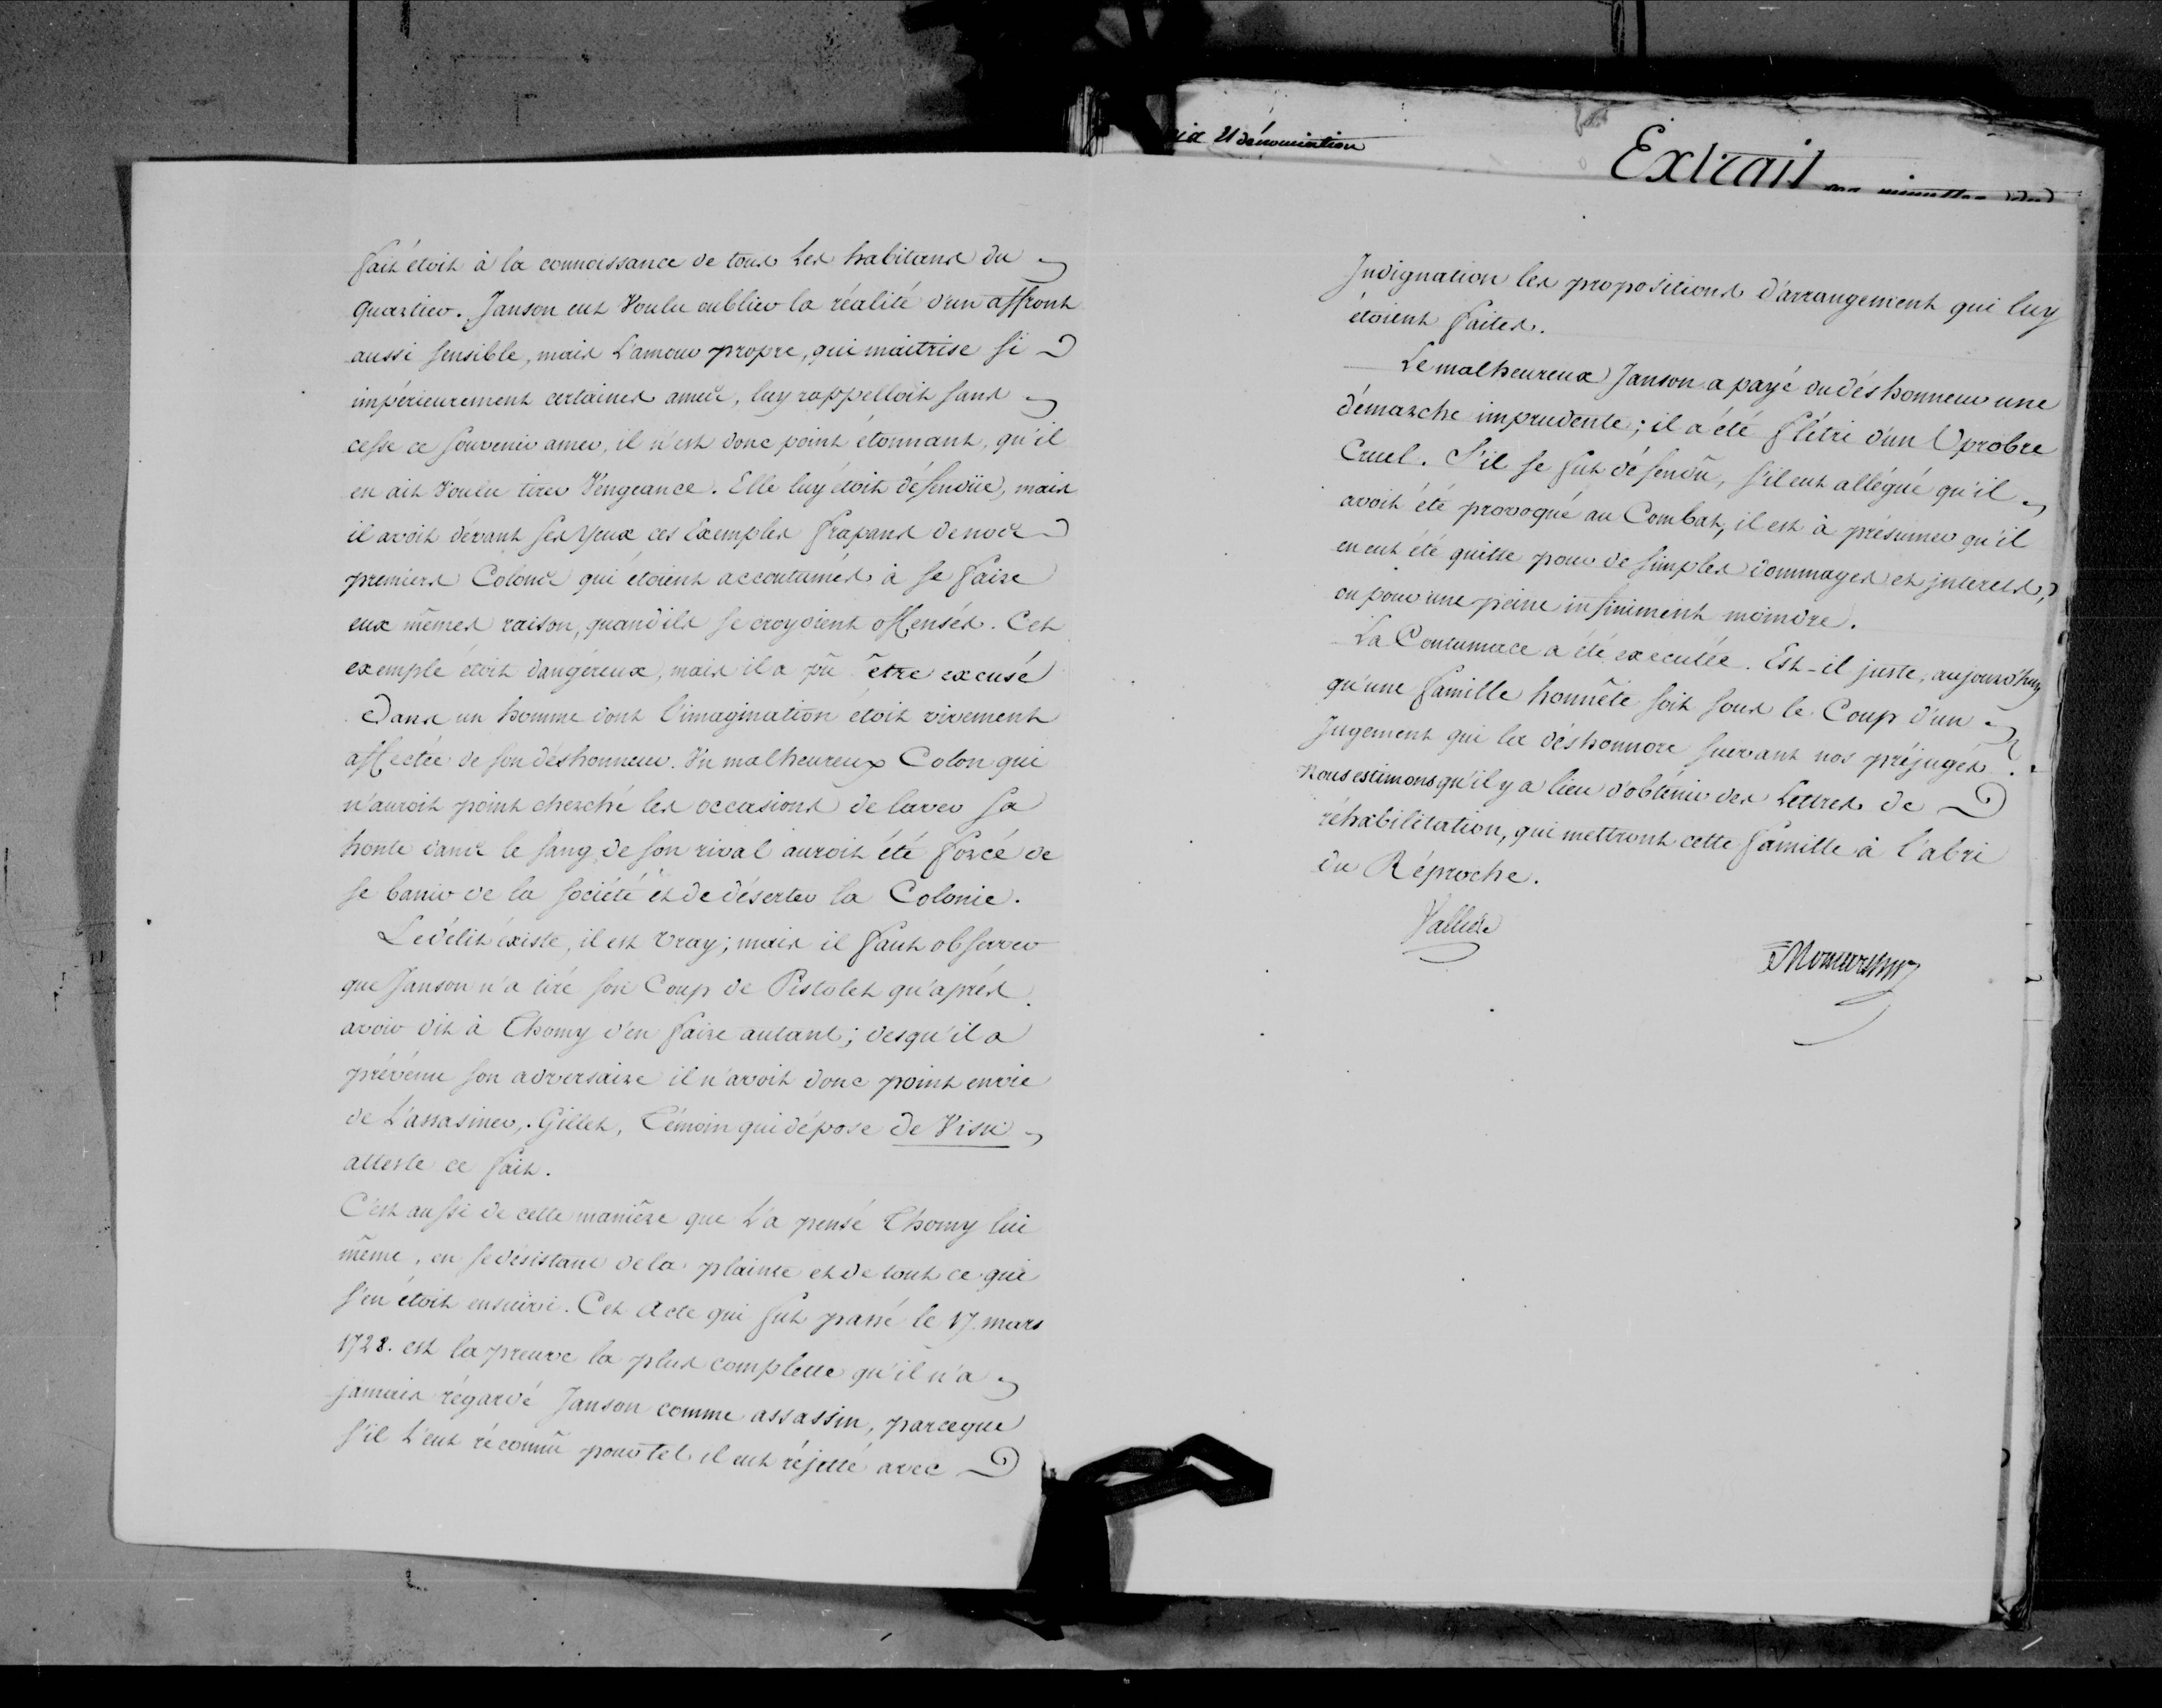 fait étoit à la connoissance de tous Les habitans du
quartier. Janson eut Voulu oublier la réalité d'un affront
aussi sensible, mais L'amour propre, qui maitrise si
impérieurement certaines ames, luy rappelloit sans
cesse ce souvenir amer, il n'est donc point étonnant, qu'il
en ait Voulu tirer Vengeance. Elle luy étoit défendüe, mais
il avoit dévant ses yeux ces Exemples frapans de nos
premiers Colons qui étoient accoutumés à se faire
eux mêmes raison, quand ils se croyoient offensés. Cet
exemple étoit dangéreux, mais il a pû être excusé
Dans un homme dont l'imagination étoit vivement
affectée de son déshonneur. Un malheureux Colon qui
n'auroit point cherché les occasions de laver sa
honte dans le sang de son rival auroit été forcé de
se banir de la société et de déserter la Colonie.
Le délit éxiste, il est vray; mais il faut observer
que Janson n'a tiré son Coup de Pistolet qu'aprés
avoir dit à Thomy d'en faire autant; desqu'il a
prévénu son adversaire il n'avoit donc point envie
de L'assasiner, Gillet, Témoin qui dépose de Visu
atteste ce fait.
C'est aussi de cette manière que L'a pensé Thomy lui
même, en se désistant de la plainte et de tout ce qui
s'en étoit ensuivi. Cet Acte qui fut passé le 17. mars
1728. est la preuve la plus complette qu'il n'a
jamais régardé Janson comme assassin, parceque
s'il L'eut réconnû pour tel il eut réjetté avec
et dénonciation
Extrait des minuttes du
Indignation les propositions d'arrangement qui luy
étoient faites.
Le malheureux Janson a payé du déshonneur une
démarche imprudente; il a été flétri d'un Oprobre
Cruel. S'il se fut défendû, s'il eut allégué qu'il
avoit été provoqué au Combat, il est à présumer qu'il
en eut été quitte pour de simples dommages et jnterets,
ou pour une peine infiniment moindre.
La Contumace a été exécutée. Est-il juste, aujourd'huy
qu'une famille honnête soit sous le Coup d'un
Jugement qui la déshonnore suivant nos préjugés?
Nous estimons qu'il y a lieu d'obténir des Lettres de
réhabilitation, qui mettront cette famille à l'abri
du Réproche.